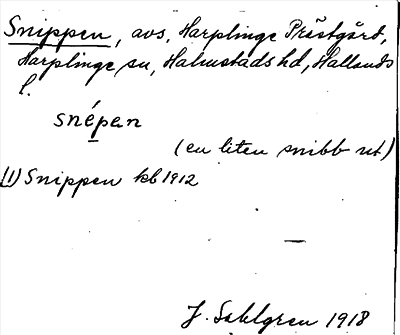 Snippen, avs, Harplinge Prästgård,
Harplinge sn, Halmstads hd, Hallands
l.
snépen
(en liten snibb ut)
(1) Snippen kb 1912
J. Sahlgren 1918